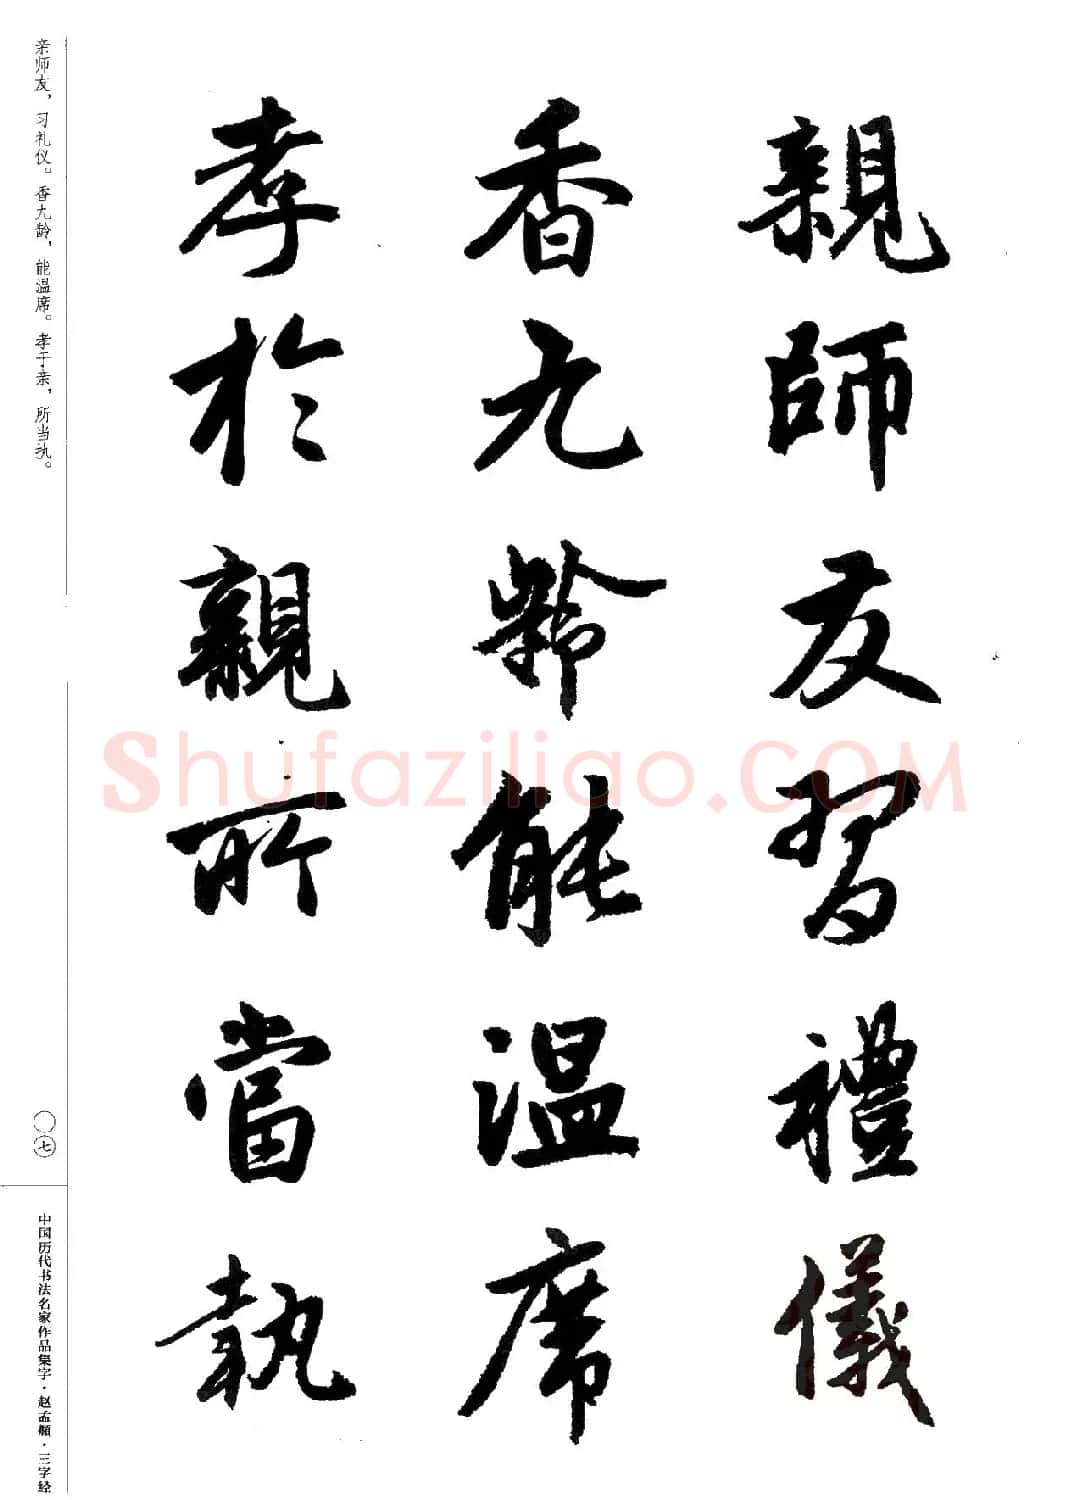 親師友習禮儀
香九齡能温席
孝於親所當執
亲师友，习礼仪。香九龄，能温席。孝于亲，所当执。
〇七
中国历代书法名家作品集字·赵孟頫·三字经
Shufaziliao.COM